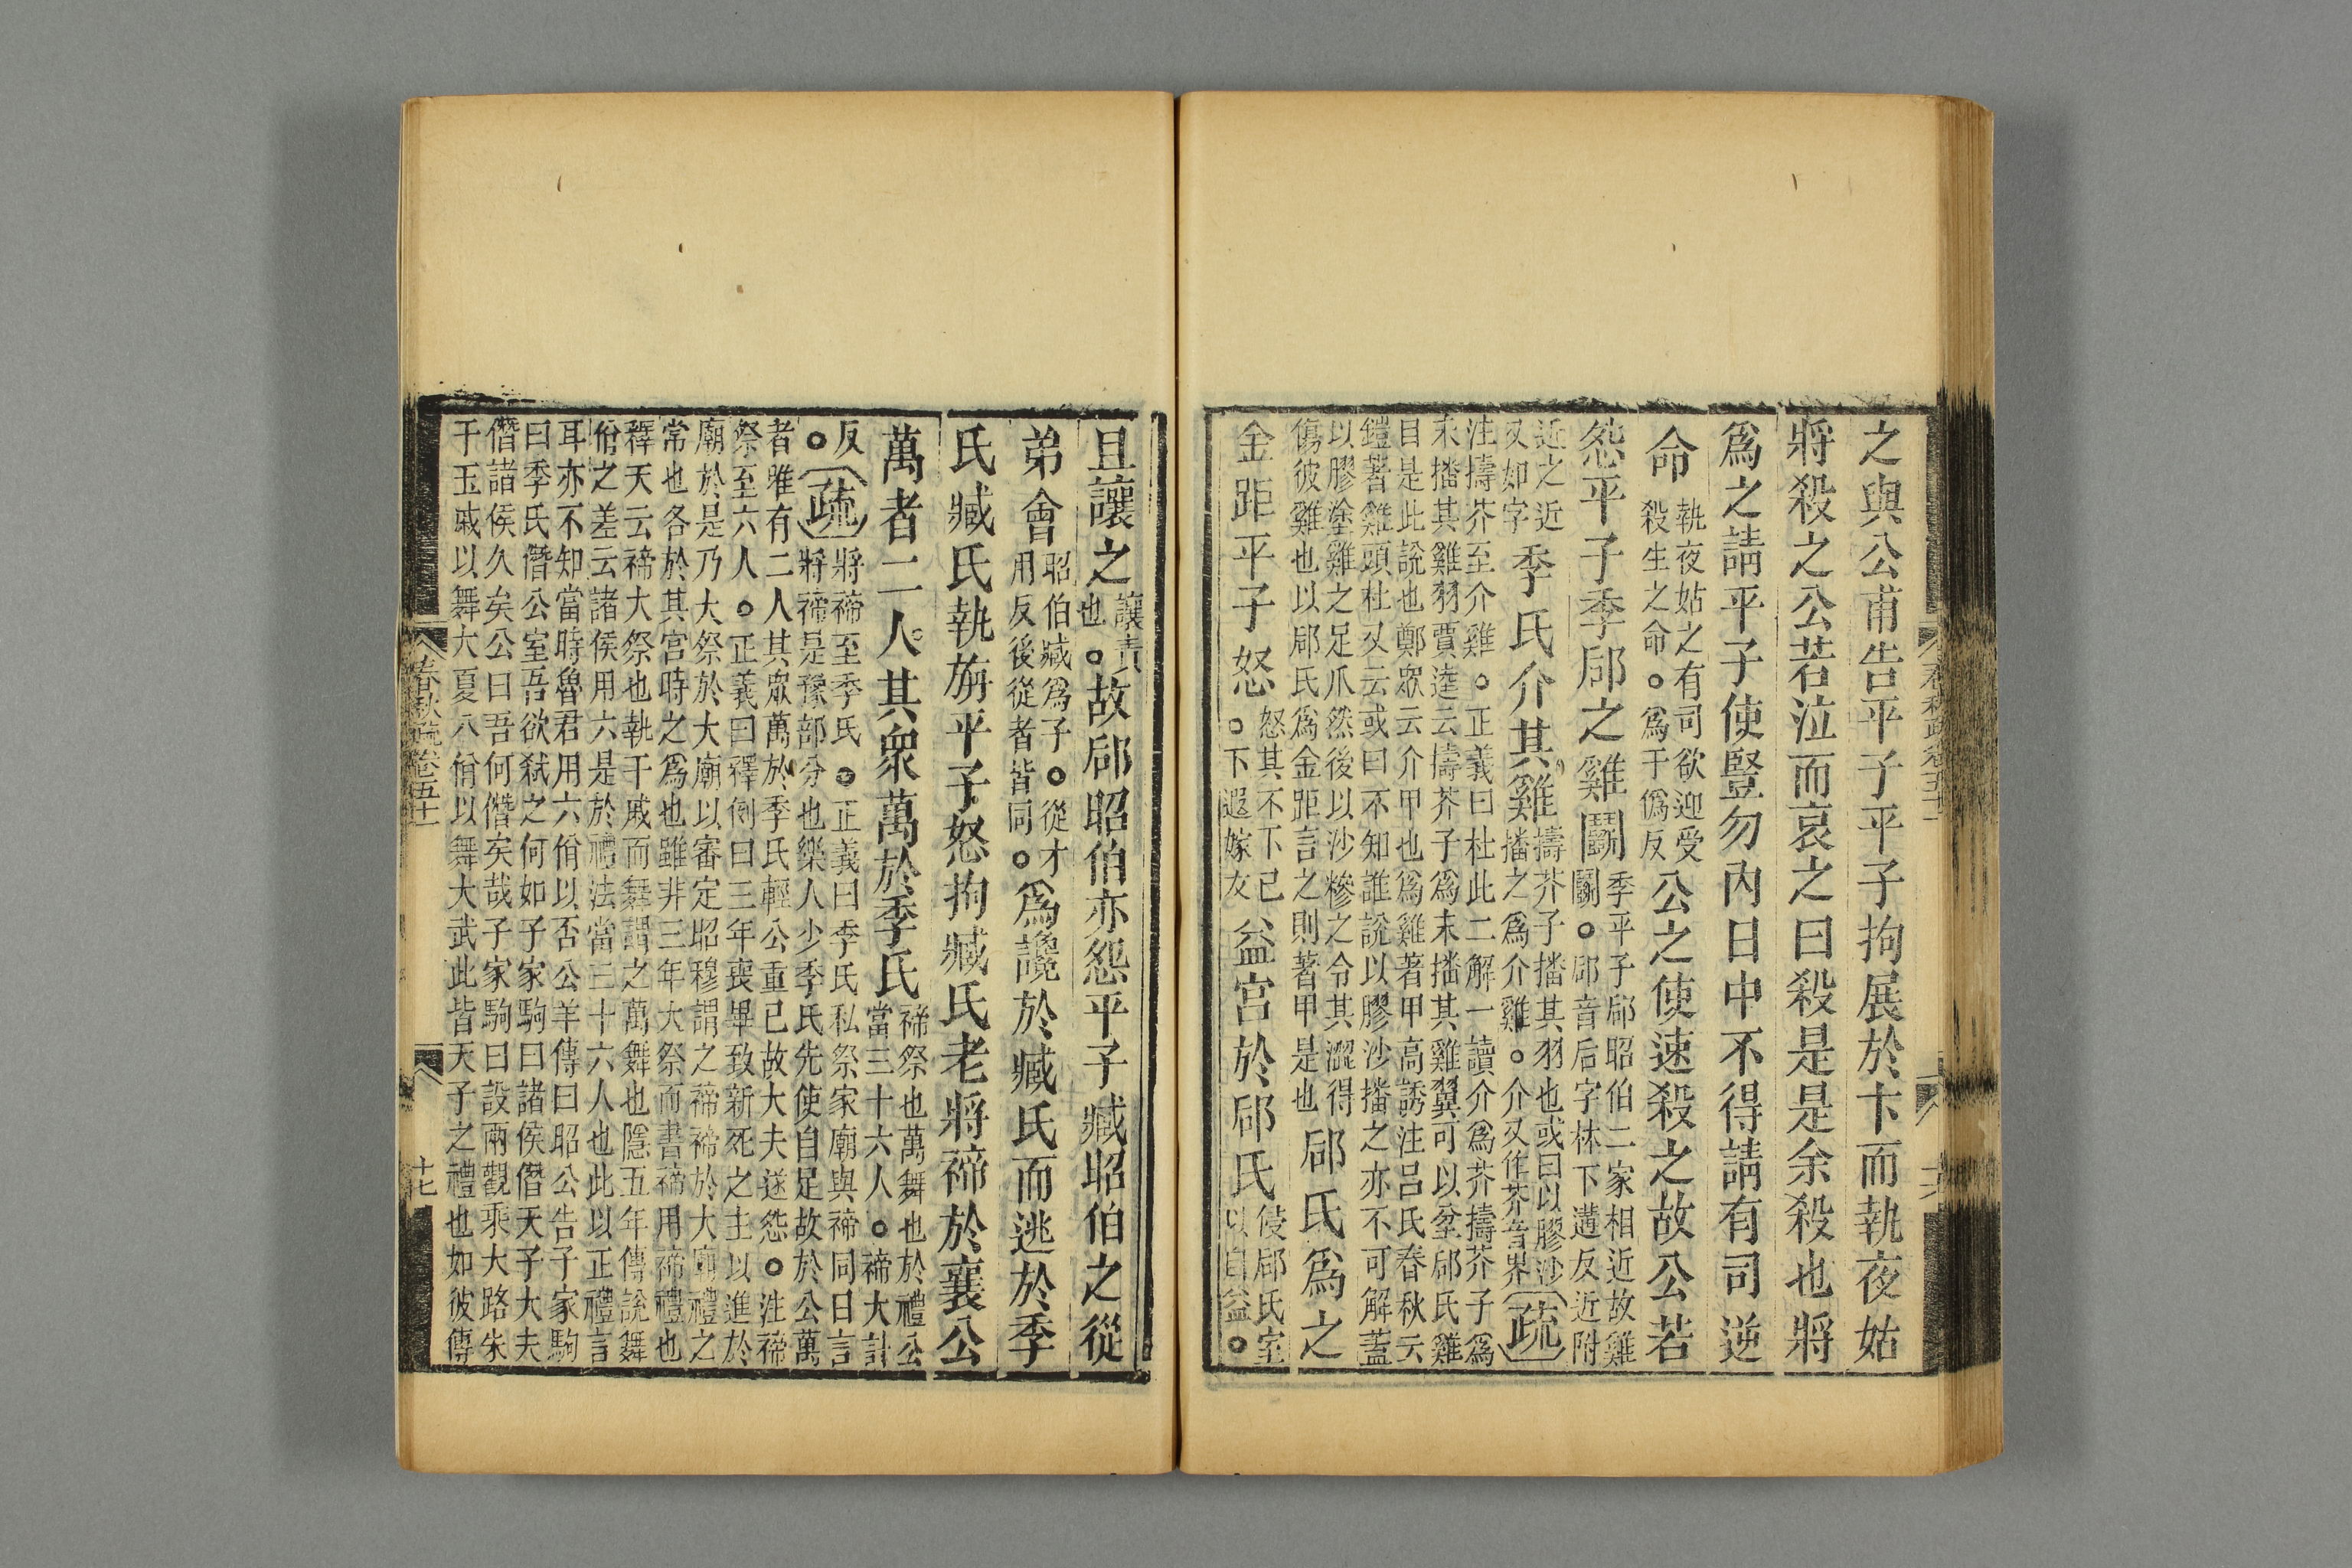 之與公甫告平子平子拘展於卞而執夜姑
將殺之公若泣而哀之曰殺是是余殺也將
爲之請平子使豎勿內日中不得請有司逆
命
執夜姑之有司欲迎受
殺生之命○爲于僞反
公之使速殺之故公若
怨平子季郈之雞鬬
季平子郈昭伯二家相近故雞
鬭○郈音后字林下遘反近附
近之近
又如字
季氏介其雞
擣芥子播其羽也或曰以膠沙
播之爲介雞○介又作芥音界
疏
注擣芥至介雞○正義曰杜此二解一讀介爲芥擣芥子爲
末播其雞羽賈逵云擣芥子爲末播其雞翼可以坌郈氏雞
目是此說也鄭眾云介甲也爲雞著甲高誘注呂氏春秋云
鎧著雞頭杜又云或曰不知誰說以膠沙播之亦不可解蓋
以膠塗雞之足爪然後以沙糝之令其澀得
傷彼雞也以郈氏爲金距言之則著甲是也
郈氏爲之
金距平子怒
怒其不下已
○下遐嫁友
益宮於郈氏
侵郈氏室
以自益○
春秋疏卷五十一
十六
且讓之
讓責
也○
故郈昭伯亦怨平子臧昭伯之從
弟會
昭伯臧爲子○從才
用反後從者皆同○
爲讒於臧氏而逃於季
氏臧氏執旃平子怒拘臧氏老將禘於襄公
萬者二人其衆萬於季氏
禘祭也萬舞也於禮公
當三十六人○禘大計
反
○
疏
將禘至季氏○正義曰季氏私祭家廟與禘同日言
將禘是豫部分也樂人少季氏先使自足故於公萬
者唯有二人其眾萬於季氏輕公重已故大夫遂怨○注禘
祭至六人○正義曰釋例曰三年喪畢致新死之主以進於
廟於是乃大祭於大廟以審定昭穆謂之禘禘於大廟禮之
常也各於其宮時之爲也雖非三年大祭而書禘用禘禮也
釋天云禘大祭也執干戚而舞謂之萬舞也隱五年傳說舞
佾之差云諸侯用六是於禮法當三十六人也此以正禮言
耳亦不知當時魯君用六佾以否公羊傳曰昭公告子家駒
曰季氏僭公室吾欲弒之何如子家駒曰諸侯僭天子大夫
僭諸侯久矣公曰吾何僭矣哉子家駒曰設兩觀乘大路朱
干玉戚以舞大夏八佾以舞大武此皆天子之禮也如彼傳
春秋疏卷五十一
十七